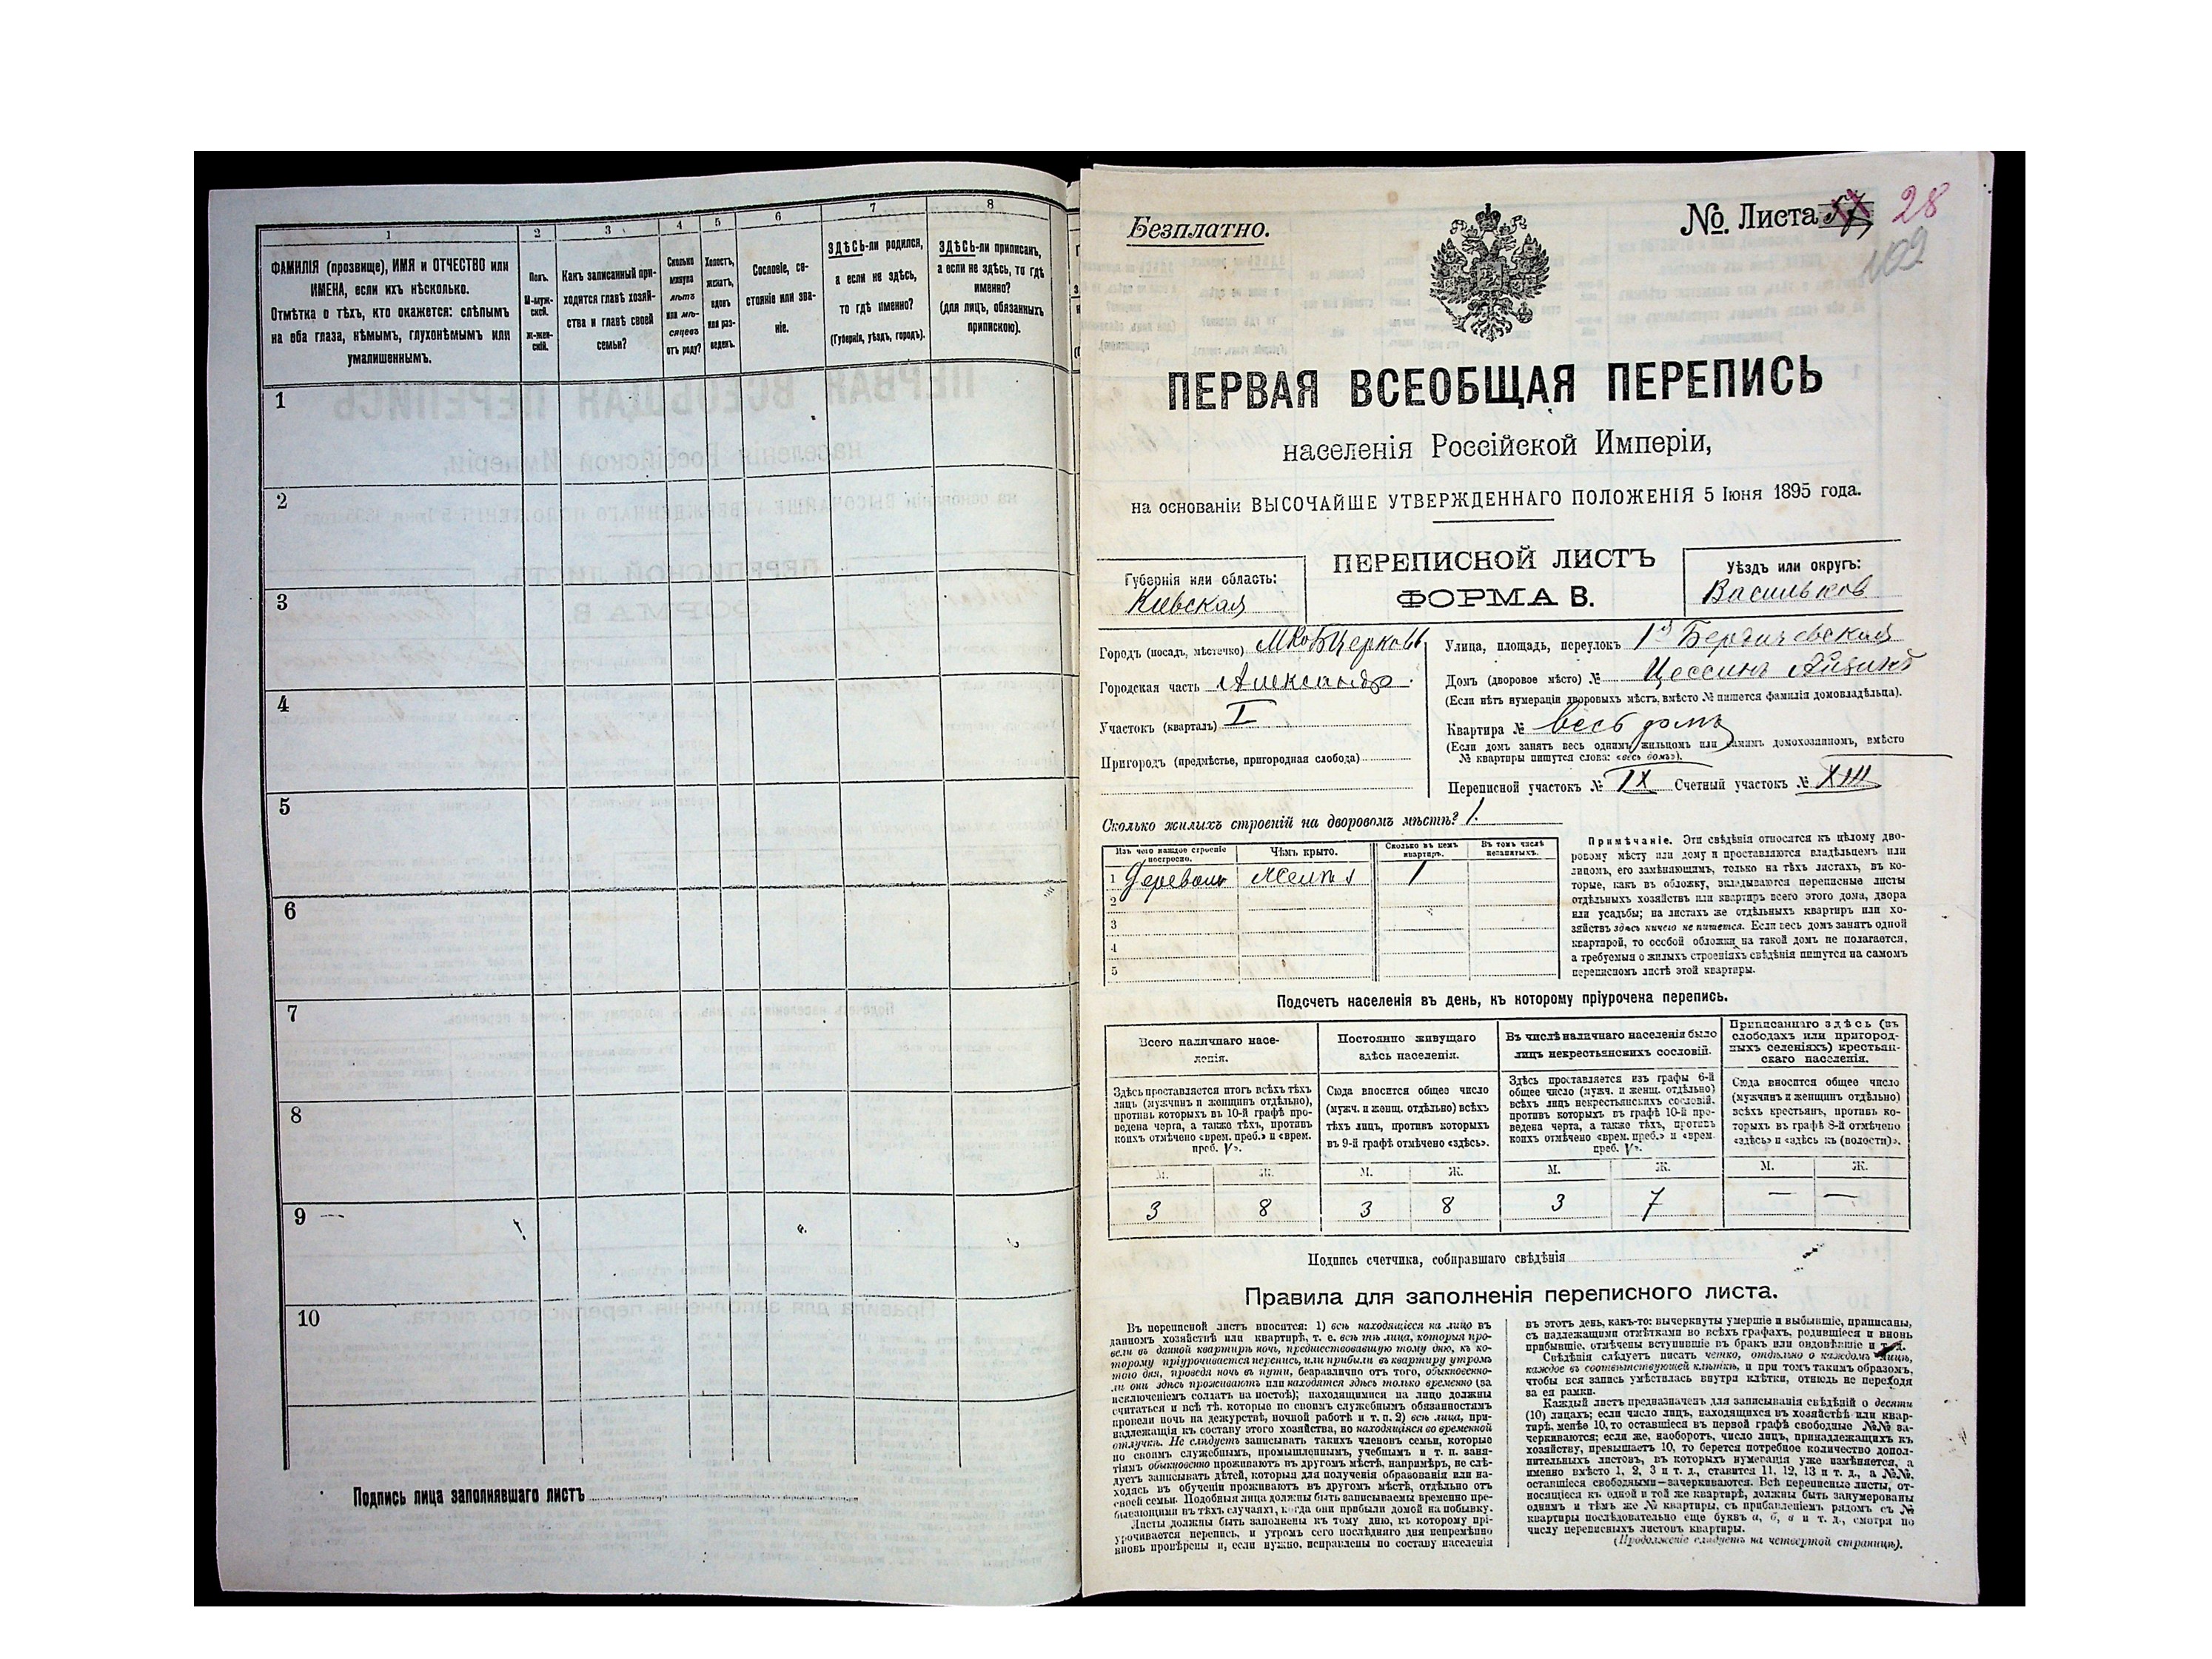 1
2
3
4
5
6
7
8
ФАМИЛІЯ (прозвище), ИМЯ и ОТЧЕСТВО или
ИМЕНА, если ихъ нѣсколько.
Отмѣтка о тѣхъ, кто окажется: слѣпымъ
на оба глаза, нѣмымъ, глухонѣмымъ или
умалишеннымъ.
Полъ.
М-муж-
ской.
ж-жен-
скій.
Какъ записанный при-
ходится главѣ хозяй-
ства и главѣ своей
семьи?
Сколько
минуло
лѣтъ
или мѣ-
сяцевъ
отъ роду?
Холостъ,
женатъ,
вдовъ
или раз-
веденъ.
Сословіе, со-
стояніе или зва-
ніе.
ЗДѢСЬ-ли родился,
а если не здѣсь,
то гдѣ именно?
(Губернія, уѣздъ, городъ).
ЗДѢСЬ-ли приписанъ,
а если не здѣсь, то гдѣ
именно?
(для лицъ, обязанныхъ
припискою).
1
2
3
4
5
6
7
8
9
10
Подпись лица заполнявшаго листъ
Безплатно.
№. Листа 28
102
ПЕРВАЯ ВСЕОБЩАЯ ПЕРЕПИСЬ
населенія Россійской Имперіи,
на основаніи ВЫСОЧАЙШЕ УТВЕРЖДЕННАГО ПОЛОЖЕНІЯ 5 Іюня 1895 года.
Губернія или область:
Кіевская
ПЕРЕПИСНОЙ ЛИСТЪ
ФОРМА В.
Уѣздъ или округъ:
Васильков
Городъ (посадъ, мѣстечко)
Городская часть Александр.
Участокъ (кварталъ) I
Пригородъ (предмѣстье, пригородная слобода)
Улица, площадь, переулокъ 1я Бердичевская
Домъ (дворовое мѣсто) №
(Если нѣтъ нумераціи дворовыхъ мѣстъ, вмѣсто № пишется фамилія домовладѣльца).
Квартира № весь домъ
(Если домъ занятъ весь однимъ жильцомъ или самимъ домохозяиномъ, вмѣсто
№ квартиры пишутся слова: «весь домъ»).
Переписной участокъ № IX Счетный участокъ № XIII
Сколько жилыхъ строеній на дворовомъ мѣстѣ? 1.
Изъ чего каждое строеніе
построено.
Чѣмъ крыто.
Сколько въ немъ
квартиръ.
Въ томъ числѣ
незанятыхъ.
1 1
2
3
4
5
Примѣчаніе. Эти свѣдѣнія относятся къ цѣлому дво-
ровому мѣсту или дому и проставляются владѣльцемъ или
лицомъ, его замѣняющимъ, только на тѣхъ листахъ, въ ко-
торые, какъ въ обложку, вкладываются переписные листы
отдѣльныхъ хозяйствъ или квартиръ всего этого дома, двора
или усадьбы; на листахъ же отдѣльныхъ квартиръ или хо-
зяйствъ здѣсь ничего не пишется. Если весь домъ занятъ одной
квартирой, то особой обложки на такой домъ не полагается,
а требуемыя о жилыхъ строеніяхъ свѣдѣнія пишутся на самомъ
переписномъ листѣ этой квартиры.
Подсчетъ населенія въ день, къ которому пріурочена перепись.
Всего наличнаго насе-
ленія.
Постоянно живущаго
здѣсь населенія.
Въ числѣ наличнаго населенія было
лицъ некрестьянскихъ сословій.
Приписаннаго здѣсь (въ
слободахъ или пригород-
ныхъ селеніяхъ) крестьян-
скаго населенія.
Здѣсь проставляется итогъ всѣхъ тѣхъ
лицъ (мужчинъ и женщинъ отдѣльно),
противъ которыхъ въ 10-й графѣ про-
ведена черта, а также тѣхъ, противъ
коихъ отмѣчено «врем. преб.» и «врем.
преб. V».
Сюда вносится общее число
(мужч. и женщ. отдѣльно) всѣхъ
тѣхъ лицъ, противъ которыхъ
въ 9-й графѣ отмѣчено «здѣсь».
Здѣсь проставляется изъ графы 6-й
общее число (мужч. и женщ. отдѣльно)
всѣхъ лицъ некрестьянскихъ сословій,
противъ которыхъ въ графѣ 10-й про-
ведена черта, а также тѣхъ, противъ
коихъ отмѣчено «врем. преб.» и «врем.
преб. V».
Сюда вносится общее число
(мужчинъ и женщинъ отдѣльно)
всѣхъ крестьянъ, противъ ко-
торыхъ въ графѣ 8-й отмѣчено
«здѣсь» и «здѣсь къ (волости)».
М. Ж. М. Ж. М. Ж. М. Ж.
3 8 3 8 3 7 — —
Подпись счетчика, собиравшаго свѣдѣнія
Правила для заполненія переписного листа.
Въ переписной листъ вносится: 1) всѣ находящіеся на лицо въ
данномъ хозяйствѣ или квартирѣ, т. е. всѣ тѣ лица, которыя про-
вели въ данной квартирѣ ночь, предшествовавшую тому дню, къ ко-
торому пріурочивается перепись, или прибыли въ квартиру утромъ
того дня, проведя ночь въ пути, безразлично отъ того, обыкновенно-
ли они здѣсь проживаютъ или находятся здѣсь только временно (за
исключеніемъ солдатъ на постоѣ); находящимися на лицо должны
считаться и всѣ тѣ, которые по своимъ служебнымъ обязанностямъ
провели ночь на дежурствѣ, ночной работѣ и т. п. 2) всѣ лица, при-
надлежащія къ составу этого хозяйства, но находящіяся во временной
отлучкѣ. Не слѣдуетъ записывать такихъ членовъ семьи, которые
по своимъ служебнымъ, промышленнымъ, учебнымъ и т. п. заня-
тіямъ обыкновенно проживаютъ въ другомъ мѣстѣ, напримѣръ, не слѣ-
дуетъ записывать дѣтей, которыя для полученія образованія или на-
ходясь въ обученіи проживаютъ въ другомъ мѣстѣ, отдѣльно отъ
своей семьи. Подобныя лица должны быть записываемы временно пре-
бывающими въ тѣхъ случаяхъ, когда они прибыли домой на побывку.
Листы должны быть заполнены къ тому дню, къ которому прі-
урочивается перепись, и утромъ сего послѣдняго дня непремѣнно
вновь провѣрены и, если нужно, исправлены по составу населенія
въ этотъ день, какъ-то: вычеркнуты умершіе и выбывшіе, приписаны,
съ надлежащими отмѣтками во всѣхъ графахъ, родившіеся и вновь
прибывшіе, отмѣчены вступившіе въ бракъ или овдовѣвшіе и т. д.
Свѣдѣнія слѣдуетъ писать четко, отдѣльно о каждомъ лицѣ,
каждое въ соотвѣтствующей клѣткѣ, и при томъ такимъ образомъ,
чтобы вся запись умѣстилась внутри клѣтки, отнюдь не переходя
за ея рамки.
Каждый листъ предназначенъ для записыванія свѣдѣній о десяти
(10) лицахъ; если число лицъ, находящихся въ хозяйствѣ или квар-
тирѣ, менѣе 10, то оставшіеся въ первой графѣ свободные №№ за-
черкиваются; если же, наоборотъ, число лицъ, принадлежащихъ къ
хозяйству, превышаетъ 10, то берется потребное количество допол-
нительныхъ листовъ, въ которыхъ нумерація уже измѣняется, а
именно вмѣсто 1, 2, 3 и т. д., ставится 11, 12, 13 и т. д., а №№,
оставшіеся свободными—зачеркиваются. Всѣ переписные листы, от-
носящіеся къ одной и той же квартирѣ, должны быть занумерованы
однимъ и тѣмъ же № квартиры, съ прибавленіемъ рядомъ съ №
квартиры послѣдовательно еще буквъ а, б, в и т. д., смотря по
числу переписныхъ листовъ квартиры.
(Продолженіе слѣдуетъ на четвертой страницѣ).